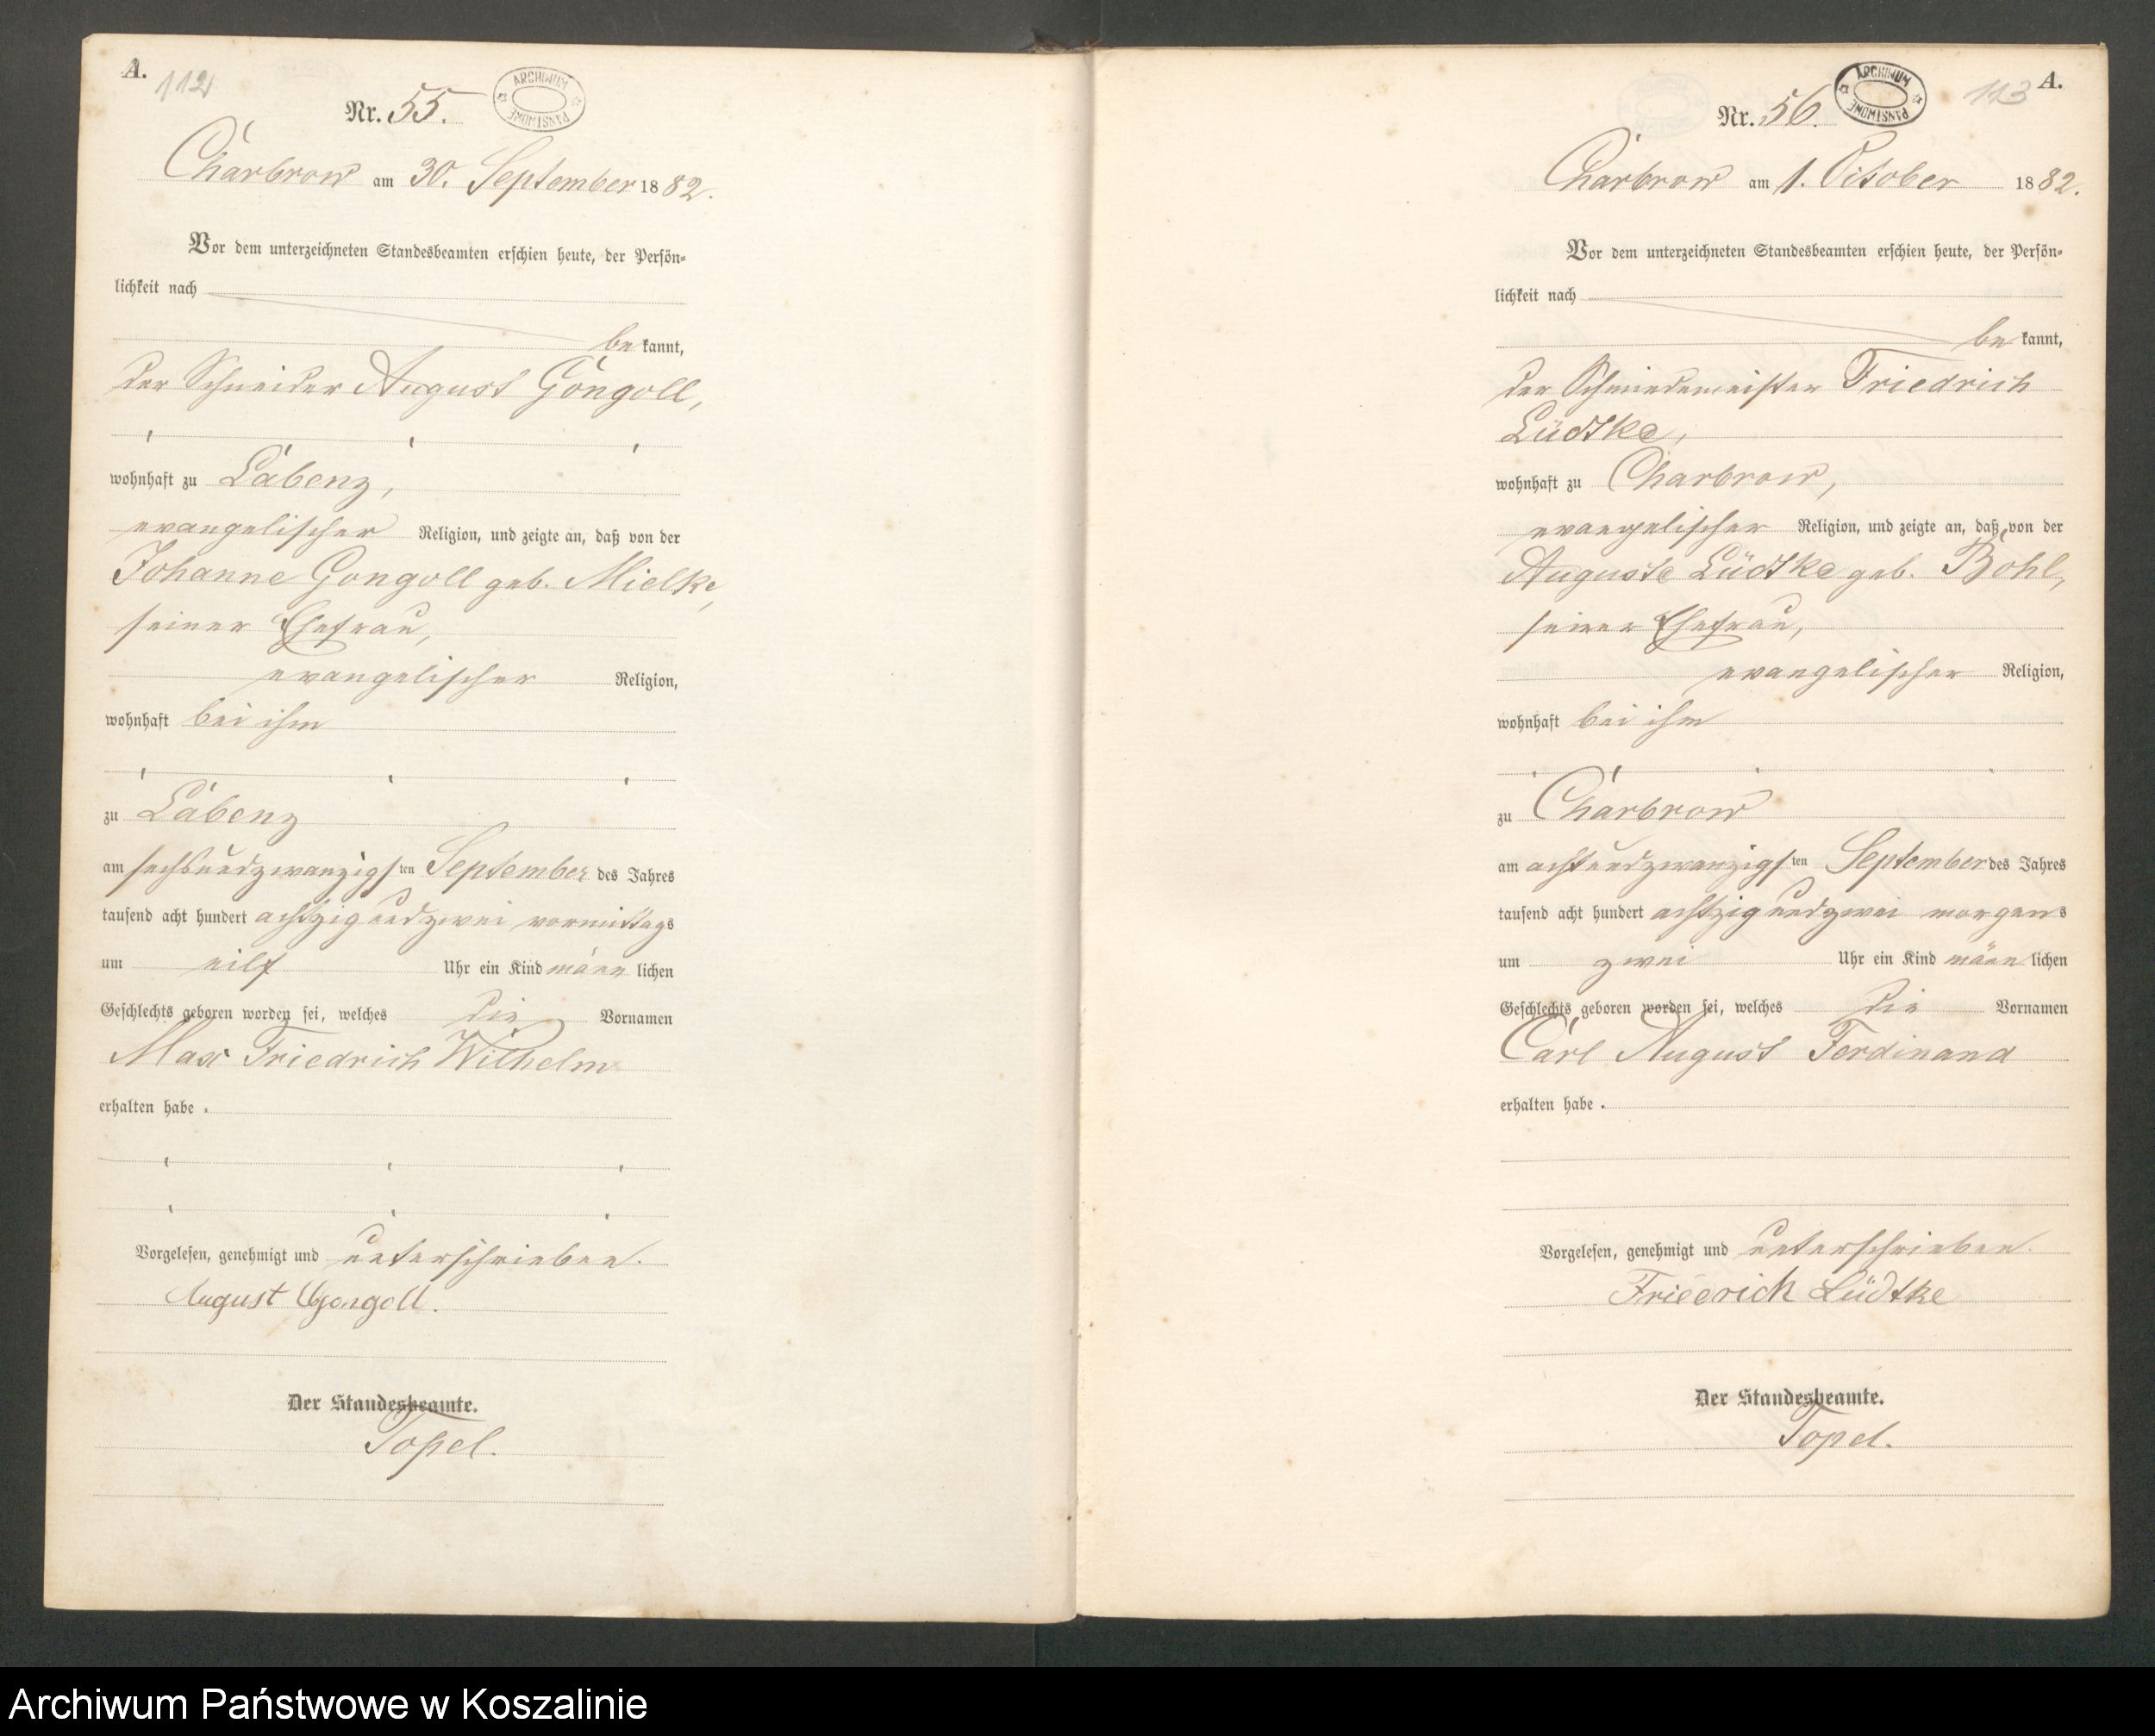 A.
112
Nr. 55.
ARCHIWUM PAŃSTWOWE
Charbrow am 30. September 1882.
Vor dem unterzeichneten Standesbeamten erschien heute, der Persön-
lichkeit nach
be kannt,
der Schneider August Gongoll,
wohnhaft zu Labenz,
evangelischer Religion, und zeigte an, daß von der
Johanne Gongoll geb. Mielke,
seiner Ehefrau,
evangelischer Religion,
wohnhaft bei ihm
zu Labenz
am sechsundzwanzigsten September des Jahres
tausend acht hundert achtzig und zwei vormittags
um eilf Uhr ein Kind männlichen
Geschlechts geboren worden sei, welches die Vornamen
Max Friedrich Wilhelm
erhalten habe.
Vorgelesen, genehmigt und unterschrieben.
August Gongoll.
Der Standesbeamte.
Topel.
113
A.
Nr. 56.
ARCHIWUM PAŃSTWOWE
Charbrow am 1. October 1882.
Vor dem unterzeichneten Standesbeamten erschien heute, der Persön-
lichkeit nach
be kannt,
der Schmiedemeister Friedrich
Lüdtke,
wohnhaft zu Charbrow,
evangelischer Religion, und zeigte an, daß von der
Auguste Lüdtke geb. Bohl,
seiner Ehefrau,
evangelischer Religion,
wohnhaft bei ihm
zu Charbrow
am achtundzwanzigsten September des Jahres
tausend acht hundert achtzig und zwei morgens
um zwei Uhr ein Kind männlichen
Geschlechts geboren worden sei, welches die Vornamen
Carl August Ferdinand
erhalten habe.
Vorgelesen, genehmigt und unterschrieben.
Friedrich Lüdtke
Der Standesbeamte.
Topel.
Archiwum Państwowe w Koszalinie